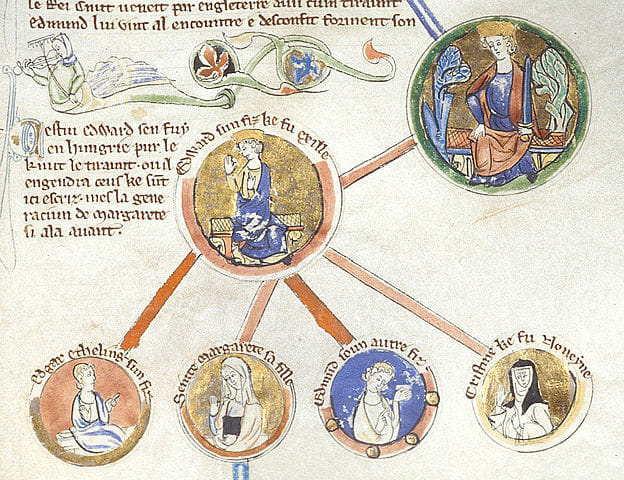 le Rei Cnut veneit par engleterre aui cum tiraint
edmund lui vint al encountre e desconfit forment son
Cestui edward sen fuy
en hungrie pur le
knut le tiraint. ou il
engendra ceus ke sunt
ici escriz. mes la gene
raciun de margarete
si ala avant.
Edward sun fiz ke fu exille
Edgar etheling sun fiz
Seinte margarete sa fille
Edmund soun autre fiz
Cristine ke fu Noneyne